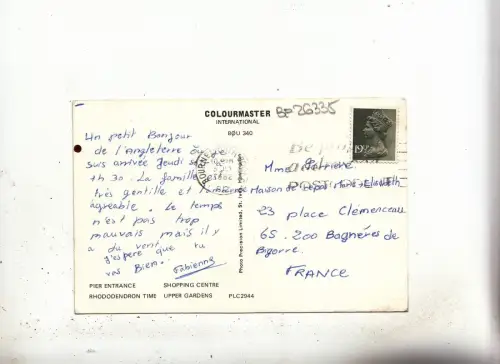 COLOURMASTER
INTERNATIONAL
BOU 340
BP26335
Un petit Bonjour
de l'Angleterre où je
suis arrivée Jeudi
1h30. La famille est
très gentille et
agréable. Le temps
n'est pas trop
mauvais mais il y
a du vent.
J'espère que tu
vas Bien.
Fabienne
Photo Precision Limited, St. Ives, Huntingdon
Mme
Maison de repos Marie Elisabeth
23 place Clémenceau
65.200 Bagnères de
Bigorre.
FRANCE
PIER ENTRANCE SHOPPING CENTRE
RHODODENDRON TIME UPPER GARDENS PLC2944